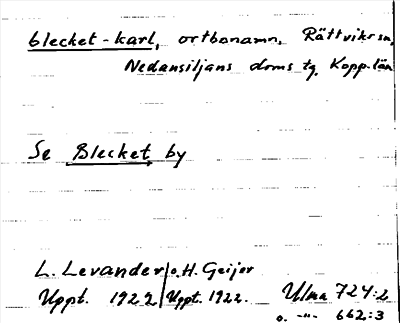 blecket-karl, ortbonamn, Rättvik sn,
Nedansiljans doms tg, Kopp. län
Se Blecket by
L. Levander o. H. Geijer
Uppt. 1922 Uppt. 1922.
Ulma 724:2
o. -"- 662:3